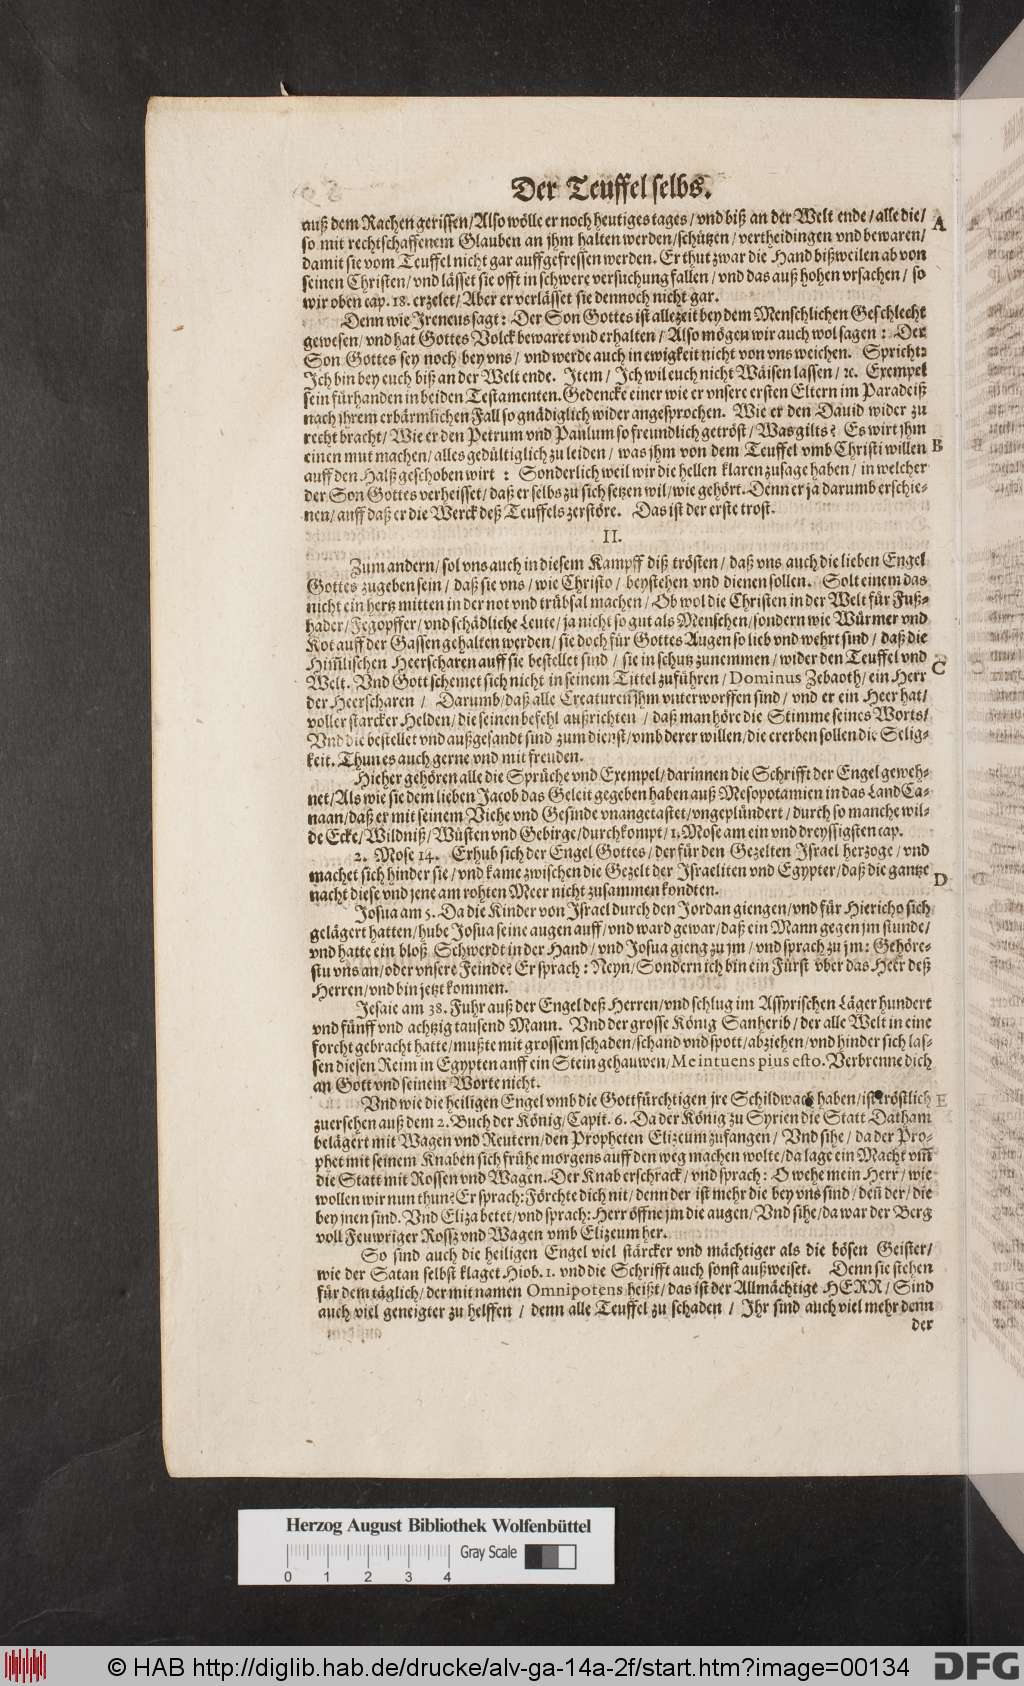 Der Teuffel selbs.
auß dem Rachen gerissen/Also wölle er noch heutiges tages/vnd biß an der Welt ende/alle die/
A
so mit rechtschaffenem Glauben an jhm halten werden/schützen/vertheidingen vnd bewaren/
damit sie vom Teuffel nicht gar auffgefressen werden. Er thut zwar die Hand bißweilen ab von
seinen Christen/vnd lässet sie offt in schwere versuchung fallen/vnd das auß hohen vrsachen/so
wir oben cap. 18. erzelet/Aber er verlässet sie dennoch nicht gar.
Denn wie Ireneus sagt: Der Son Gottes ist allezeit bey dem Menschlichen Geschlecht
gewesen/vnd hat Gottes Volck bewaret vnd erhalten/Also mögen wir auch wol sagen: Der
Son Gottes sey noch bey vns/vnd werde auch in ewigkeit nicht von vns weichen. Spricht:
Ich bin bey euch biß an der Welt ende. Item/Ich wil euch nicht Wäisen lassen/ꝛc. Exempel
sein fürhanden in beiden Testamenten. Gedencke einer wie er vnsere ersten Eltern im Paradeiß
nach jhrem erbärmlichen Fall so gnädiglich wider angesprochen. Wie er den Dauid wider zu
recht bracht/Wie er den Petrum vnd Paulum so freundlich getröst/Was gilts? Es wirt jhm
einen mut machen/alles gedültiglich zu leiden/was jhm von dem Teuffel vmb Christi willen
B
auff den Halß geschoben wirt: Sonderlich weil wir die hellen klaren zusage haben/in welcher
der Son Gottes verheisset/daß er selbs zu sich setzen wil/wie gehört. Denn er ja darumb erschie-
nen/auff daß er die Werck deß Teuffels zerstöre. Das ist der erste trost.
II.
Zum andern/sol vns auch in diesem Kampff diß trösten/daß vns auch die lieben Engel
Gottes zugeben sein/daß sie vns/wie Christo/beystehen vnd dienen sollen. Solt einem das
nicht ein hertz mitten in der not vnd trübsal machen/Ob wol die Christen in der Welt für Fuß-
hader/Fegopffer/vnd schädliche Leute/ja nicht so gut als Menschen/sondern wie Würmer vnd
Kot auff der Gassen gehalten werden/sie doch für Gottes Augen so lieb vnd wehrt sind/daß die
Him̃lischen Heerscharen auff sie bestellet sind/sie in schutz zunemmen/wider den Teuffel vnd
C
Welt. Vnd Gott schemet sich nicht in seinem Tittel zuführen/Dominus Zebaoth/ein Herr
der Heerscharen/Darumb/daß alle Creaturen jhm vnterworffen sind/vnd er ein Heer hat/
voller starcker Helden/die seinen befehl außrichten/daß man höre die Stimme seines Worts/
Vnd die bestellet vnd außgesandt sind zum dienst/vmb derer willen/die ererben sollen die Selig-
keit. Thun es auch gerne vnd mit freuden.
Hieher gehören alle die Sprüche vnd Exempel/darinnen die Schrifft der Engel geweh-
net/Als wie sie dem lieben Jacob das Geleit gegeben haben auß Mesopotamien in das Land Ca-
naan/daß er mit seinem Viehe vnd Gesinde vnangetastet/vngeplündert/durch so manche wil-
de Ecke/Wildniß/Wüsten vnd Gebirge/durchkompt/1. Mose am ein vnd dreyssigsten cap.
2. Mose 14. Erhub sich der Engel Gottes/der für den Gezelten Israel herzoge/vnd
machet sich hinder sie/vnd kame zwischen die Gezelt der Israeliten vnd Egypter/daß die gantze
D
nacht diese vnd jene am rohten Meer nicht zusammen kondten.
Josua am 5. Da die Kinder von Israel durch den Jordan giengen/vnd für Hiericho sich
gelägert hatten/hube Josua seine augen auff/vnd ward gewar/daß ein Mann gegen jm stunde/
vnd hatte ein bloß Schwerdt in der Hand/vnd Josua gieng zu jm/vnd sprach zu jm: Gehöre-
stu vns an/oder vnsere Feinde? Er sprach: Neyn/Sondern ich bin ein Fürst vber das Heer deß
Herren/vnd bin jetzt kommen.
Jesaie am 38. Fuhr auß der Engel deß Herren/vnd schlug im Assyrischen Läger hundert
vnd fünff vnd achtzig tausend Mann. Vnd der grosse König Sanherib/der alle Welt in eine
forcht gebracht hatte/mußte mit grossem schaden/schand vnd spott/abziehen/vnd hinder sich las-
sen diesen Reim in Egypten anff ein Stein gehauwen/Me intuens pius esto. Verbrenne dich
an Gott vnd seinem Worte nicht.
Vnd wie die heiligen Engel vmb die Gottfürchtigen jre Schildwach haben/ist tröstlich
E
zuersehen auß dem 2. Buch der König/Capit. 6. Da der König zu Syrien die Statt Datham
belägert mit Wagen vnd Reutern/den Propheten Elizeum zufangen/Vnd sihe/da der Pro-
phet mit seinem Knaben sich frühe morgens auff den weg machen wolte/da lage ein Macht vm̃
die Statt mit Rossen vnd Wagen. Der Knab erschrack/vnd sprach: O wehe mein Herr/wie
wollen wir nun thun? Er sprach: Förchte dich nit/denn der ist mehr die bey vns sind/deñ der/die
bey jnen sind. Vnd Eliza betet/vnd sprach: Herr öffne jm die augen/Vnd sihe/da war der Berg
voll Feuwriger Rossz vnd Wagen vmb Elizeum her.
So sind auch die heiligen Engel viel stärcker vnd mächtiger als die bösen Geister/
wie der Satan selbst klaget Hiob. 1. vnd die Schrifft auch sonst außweiset. Denn sie stehen
für dem täglich/der mit namen Omnipotens heißt/das ist der Allmächtige HERR/Sind
auch viel geneigter zu helffen/denn alle Teuffel zu schaden/Ihr sind auch viel mehr denn
der
Herzog August Bibliothek Wolfenbüttel
Gray Scale
0 1 2 3 4
© HAB http://diglib.hab.de/drucke/alv-ga-14a-2f/start.htm?image=00134
DFG